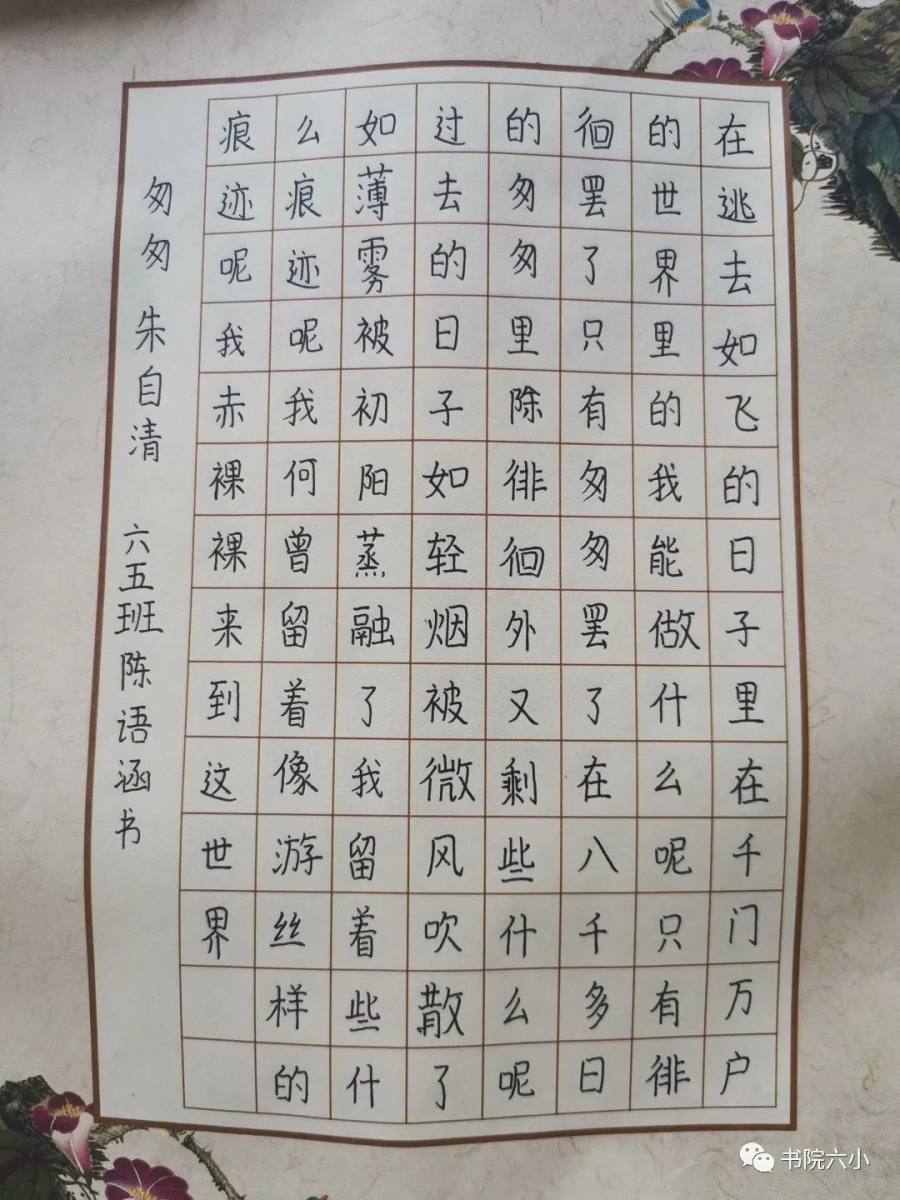 在逃去如飞的日子里在千门万户
的世界里的我能做什么呢只有徘
徊罢了只有匆匆罢了在八千多日
的匆匆里除徘徊外又剩些什么呢
过去的日子如轻烟被微风吹散了
如薄雾被初阳蒸融了我留着些什
么痕迹呢我何曾留着像游丝样的
痕迹呢我赤裸裸来到这世界
匆匆 朱自清 六五班陈语涵书
书院六小